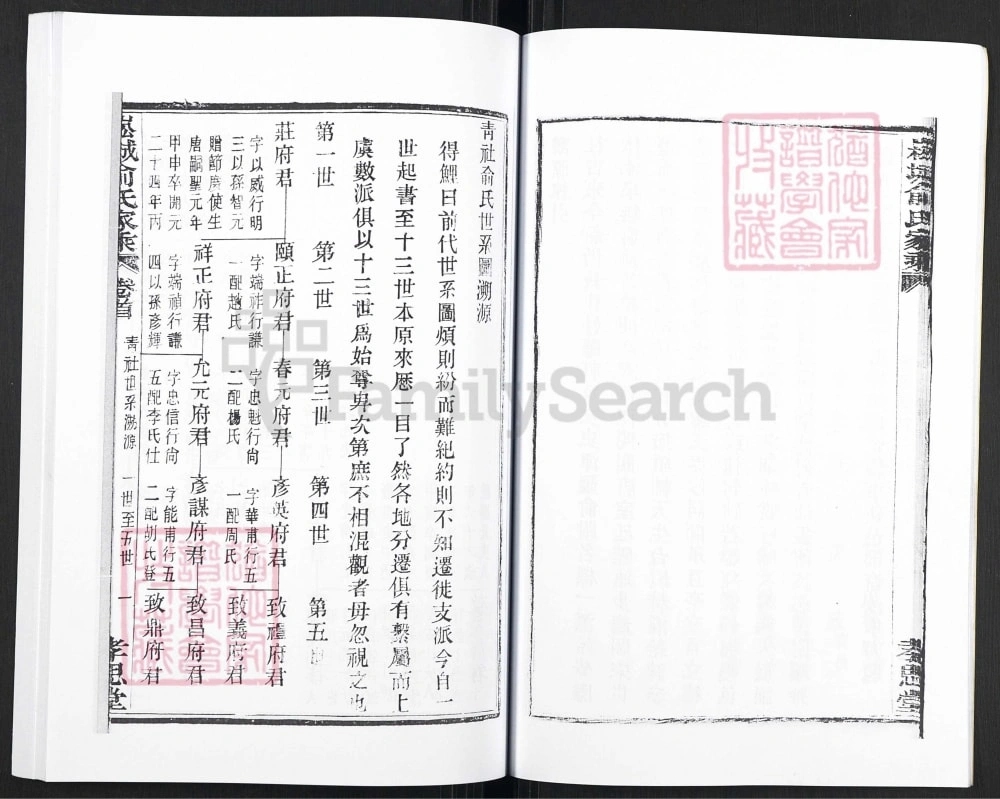 青社俞氏世系圖溯源
得鯉曰前代世系圖煩則紛而難紀約則不知遷徙支派今自一
世起書至十三世本原來歷一目了然各地分遷俱有繫屬而上
虞數派俱以十三世爲始尊卑次第庶不相混觀者毋忽視之也
第一世 第二世 第三世 第四世 第五世
莊府君 頤正府君 春元府君 彥英府君 致禮府君
字以威行明 字端祚行謙 字忠魁行尚 字華甫行五
三以孫智元 一配趙氏 二配楊氏 一配周氏 致義府君
贈節度使生
唐嗣聖元年 祥正府君 允元府君 彥謀府君 致昌府君
甲申卒開元 字端禎行謙 字忠信行尚 字能甫行五
二十四年丙 四以孫彥輝 五配李氏仕 二配胡氏登 致鼎府君
俞氏家乘 卷首 青社世系溯源 一世至五世 一 孝思堂
俞氏家乘 孝思堂
FamilySearch